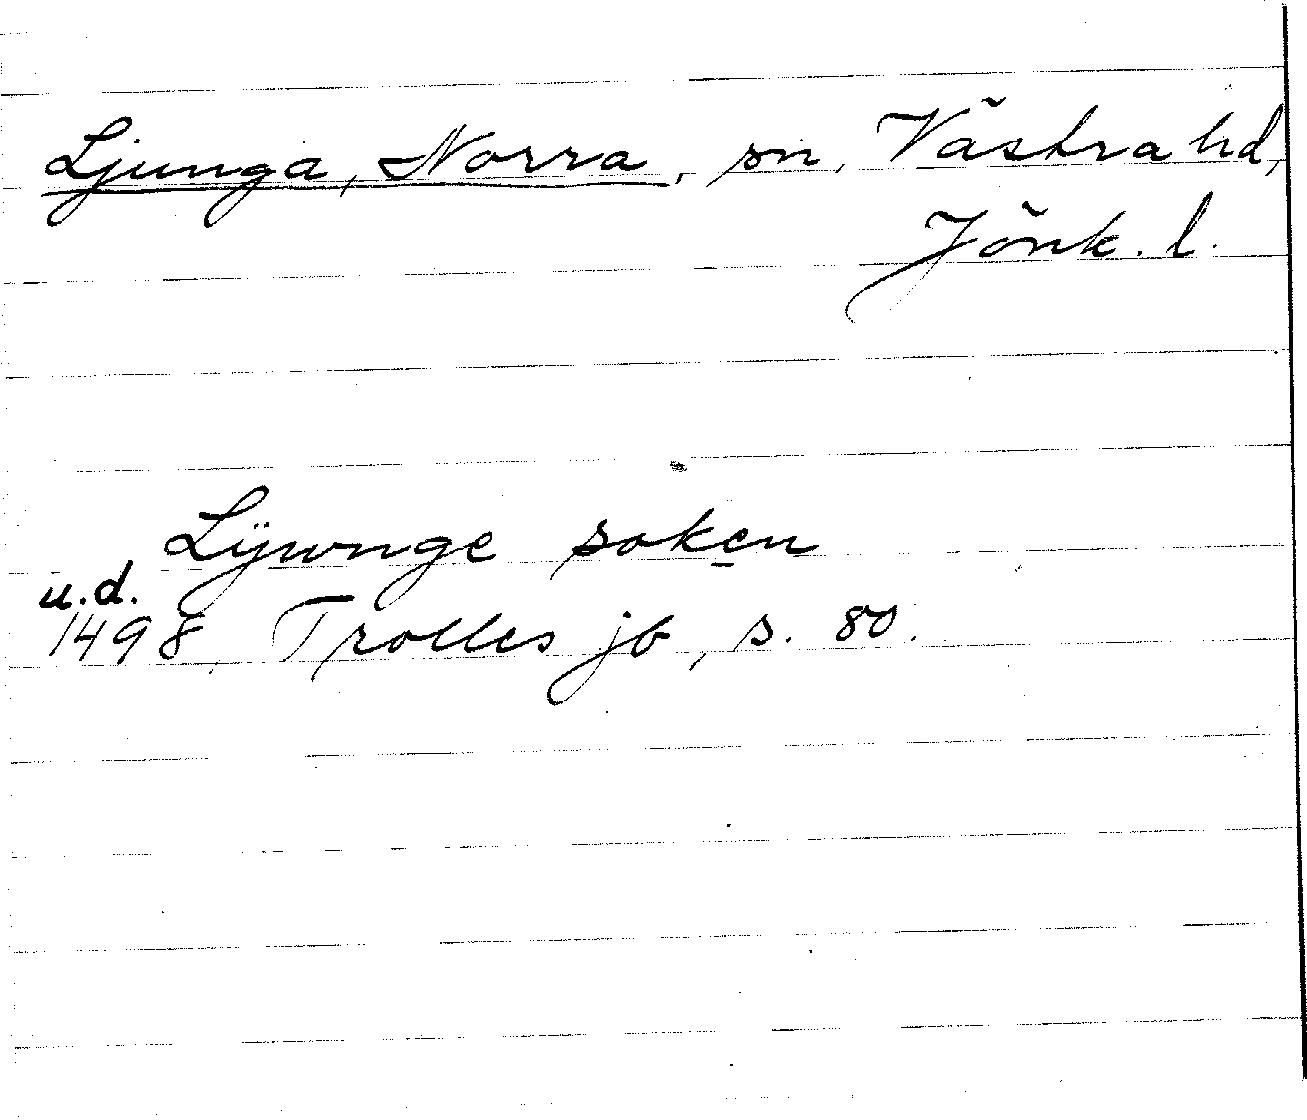 Ljunga, Norra, sn, Västra hd,
Jönk. l.
Lÿwnge soken
u.d.
1498 Trolles jb, s. 80.